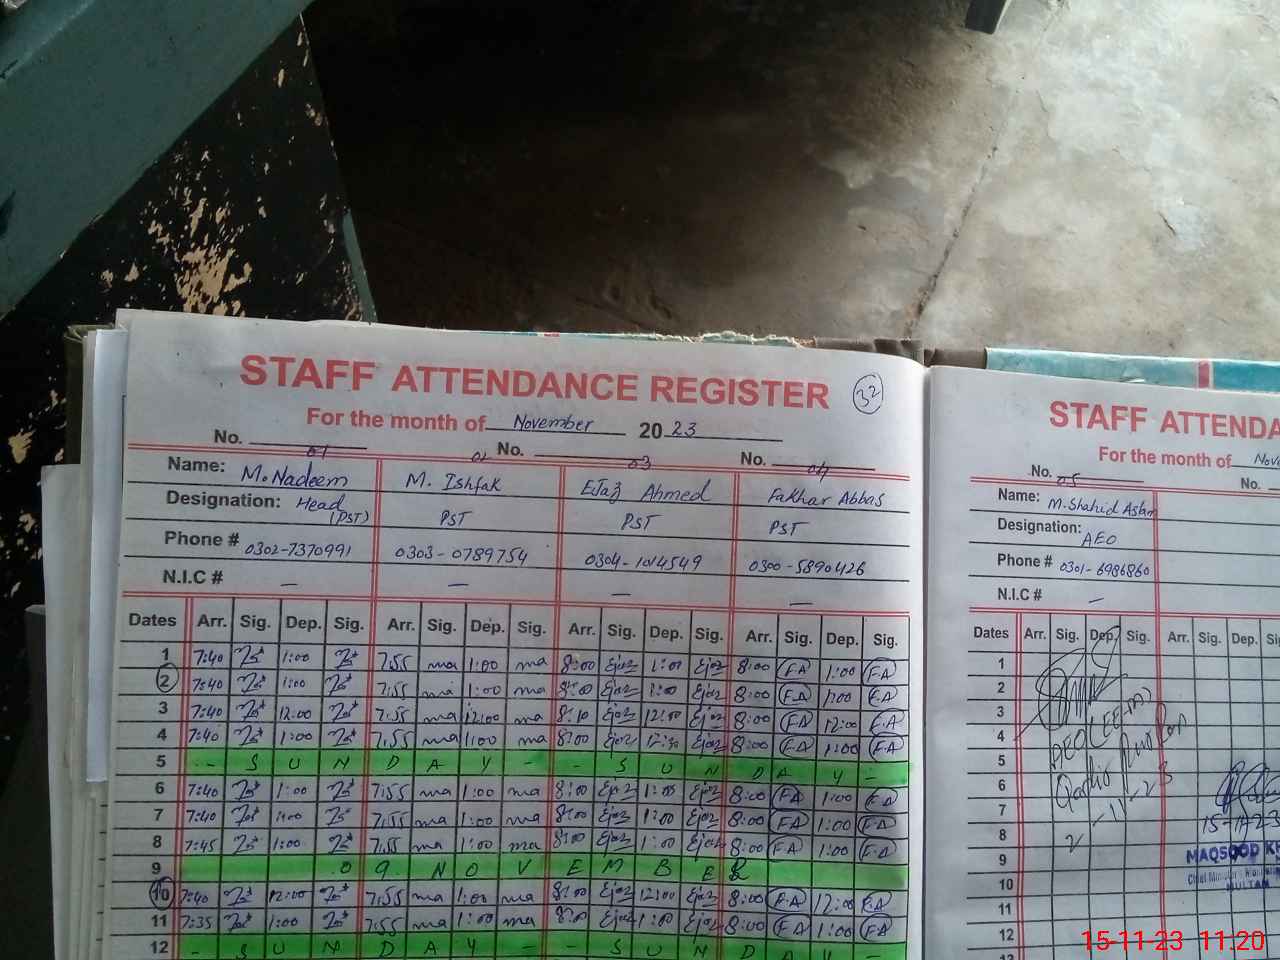 STAFF ATTENDANCE REGISTER 32
For the month of November 2023
No. 01 No. 02 03 No. 04
Name: M. Nadeem M. Ishfak EJaz Ahmed Fakhar Abbas
Designation: Head (PST) PST PST PST
Phone # 0302-7370991 0303-0789754 0304-1014549 0300-5890426
N.I.C # — — — —
Dates Arr. Sig. Dep. Sig. Arr. Sig. Dep. Sig. Arr. Sig. Dep. Sig. Arr. Sig. Dep. Sig.
1 7:40 1:00 7:55 ma 1:00 ma 8:00 Ejaz 1:00 Ejaz 8:00 F.A 1:00 F.A
2 7:40 1:00 7:55 ma 1:00 ma 8:00 Ejaz 1:00 Ejaz 8:00 F.A 1:00 F.A
3 7:40 12:00 7:55 ma 12:00 ma 8:10 Ejaz 12:00 Ejaz 8:00 F.A 12:00 F.A
4 7:40 1:00 7:55 ma 1:00 ma 8:00 Ejaz Ejaz 8:00 F.A 1:00 F.A
5 - - S U N D A Y - - S U N D A Y -
6 7:40 1:00 7:55 ma 1:00 ma 8:00 Ejaz 1:00 Ejaz 8:00 F.A 1:00 F.A
7 7:40 1:00 7:55 ma 1:00 ma 8:00 Ejaz 1:00 Ejaz 8:00 F.A 1:00 F.A
8 7:45 1:00 7:55 ma 1:00 ma 8:00 Ejaz 1:00 Ejaz 8:00 F.A 1:00 F.A
9 09 N O V E M B E R
10 7:40 12:00 7:55 ma 1:00 ma 8:00 Ejaz 12:00 Ejaz 8:00 F.A 12:00 F.A
11 7:35 1:00 7:55 ma 1:00 ma 8:00 Ejaz 1:00 Ejaz 8:00 F.A 1:00 F.A
12 - S U N D A Y - - S U N D A Y -
STAFF ATTENDA
For the month of Nov
No. 05 No.
Name: M. Shahid Aslam
Designation: AEO
Phone # 0301-6986860
N.I.C # —
Dates Arr. Sig. Dep. Sig. Arr. Sig. Dep. Sig
1
2
3
4 AEO (EE-M)
5
6
7 2-11-23 15-11-23
8
9 MAQSOOD KH
10 MULTAN
11
12
15-11-23 11.20